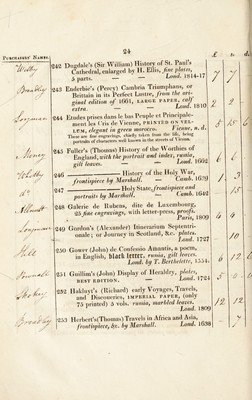 24
PURCHASERS' NAMES.
£ s. d.
242 Dugdale's (Sir William) History of St. Paul's
Cathedral, enlarged by H. Ellis, fine plates,
5 parts. — Lond. 1814-17
7 7
243 Enderbie's (Percy) Cambria Triumphans, or
Brittain in its Perfect Lustre, from the ori-
ginal edition of 1661, LARGE PAPER, calf
extra. — Lond. 1810
2 2
244 Etudes prises dans le bas Peuple et Principale-
ment les Cris de Vienne, PRINTED ON VEL-
LUM, elegant in green morocco. Vienne, n. d.
These are fine engravings, chiefly taken from the life, being
portraits of characters well known in the streets of Vienna.
5 15 6
Money
245 Fuller's (Thomas) History of the Worthies of
England, with the portrait and index, russia,
gilt leaves. — Lond. 1662
246 — History of the Holy War,
frontispiece by Marshall. — Camb. 1639
247 — Holy State, frontispiece and
portraits by Marshall. — Camb. 1642
248 Galerie de Rubens, dite de Luxembourg,
25 fine engravings, with letter-press, proofs.
Paris, 1809
249 Gordon's (Alexander) Itinerarium Septentri-
onale; or Journey in Scotland, &c. plates.
Lond. 1727
250 Gower (John) de Confessio Amantis, a poem,
in English, black letter, russia, gilt leaves.
Lond. by T. Berthelette, 1554.
251 Guillim's (John) Display of Heraldry, plates,
BEST EDITION. — Lond. 1724
252 Hakluyt's (Richard) early Voyages, Travels,
and Discoveries, IMPERIAL PAPER, (only
75 printed) 5 vols. russia, marbled leaves.
Lond. 1809
12 12
253 Herbert's (Thomas) Travels in Africa and Asia,
frontispiece, &c. by Marshall. Lond. 1638
7